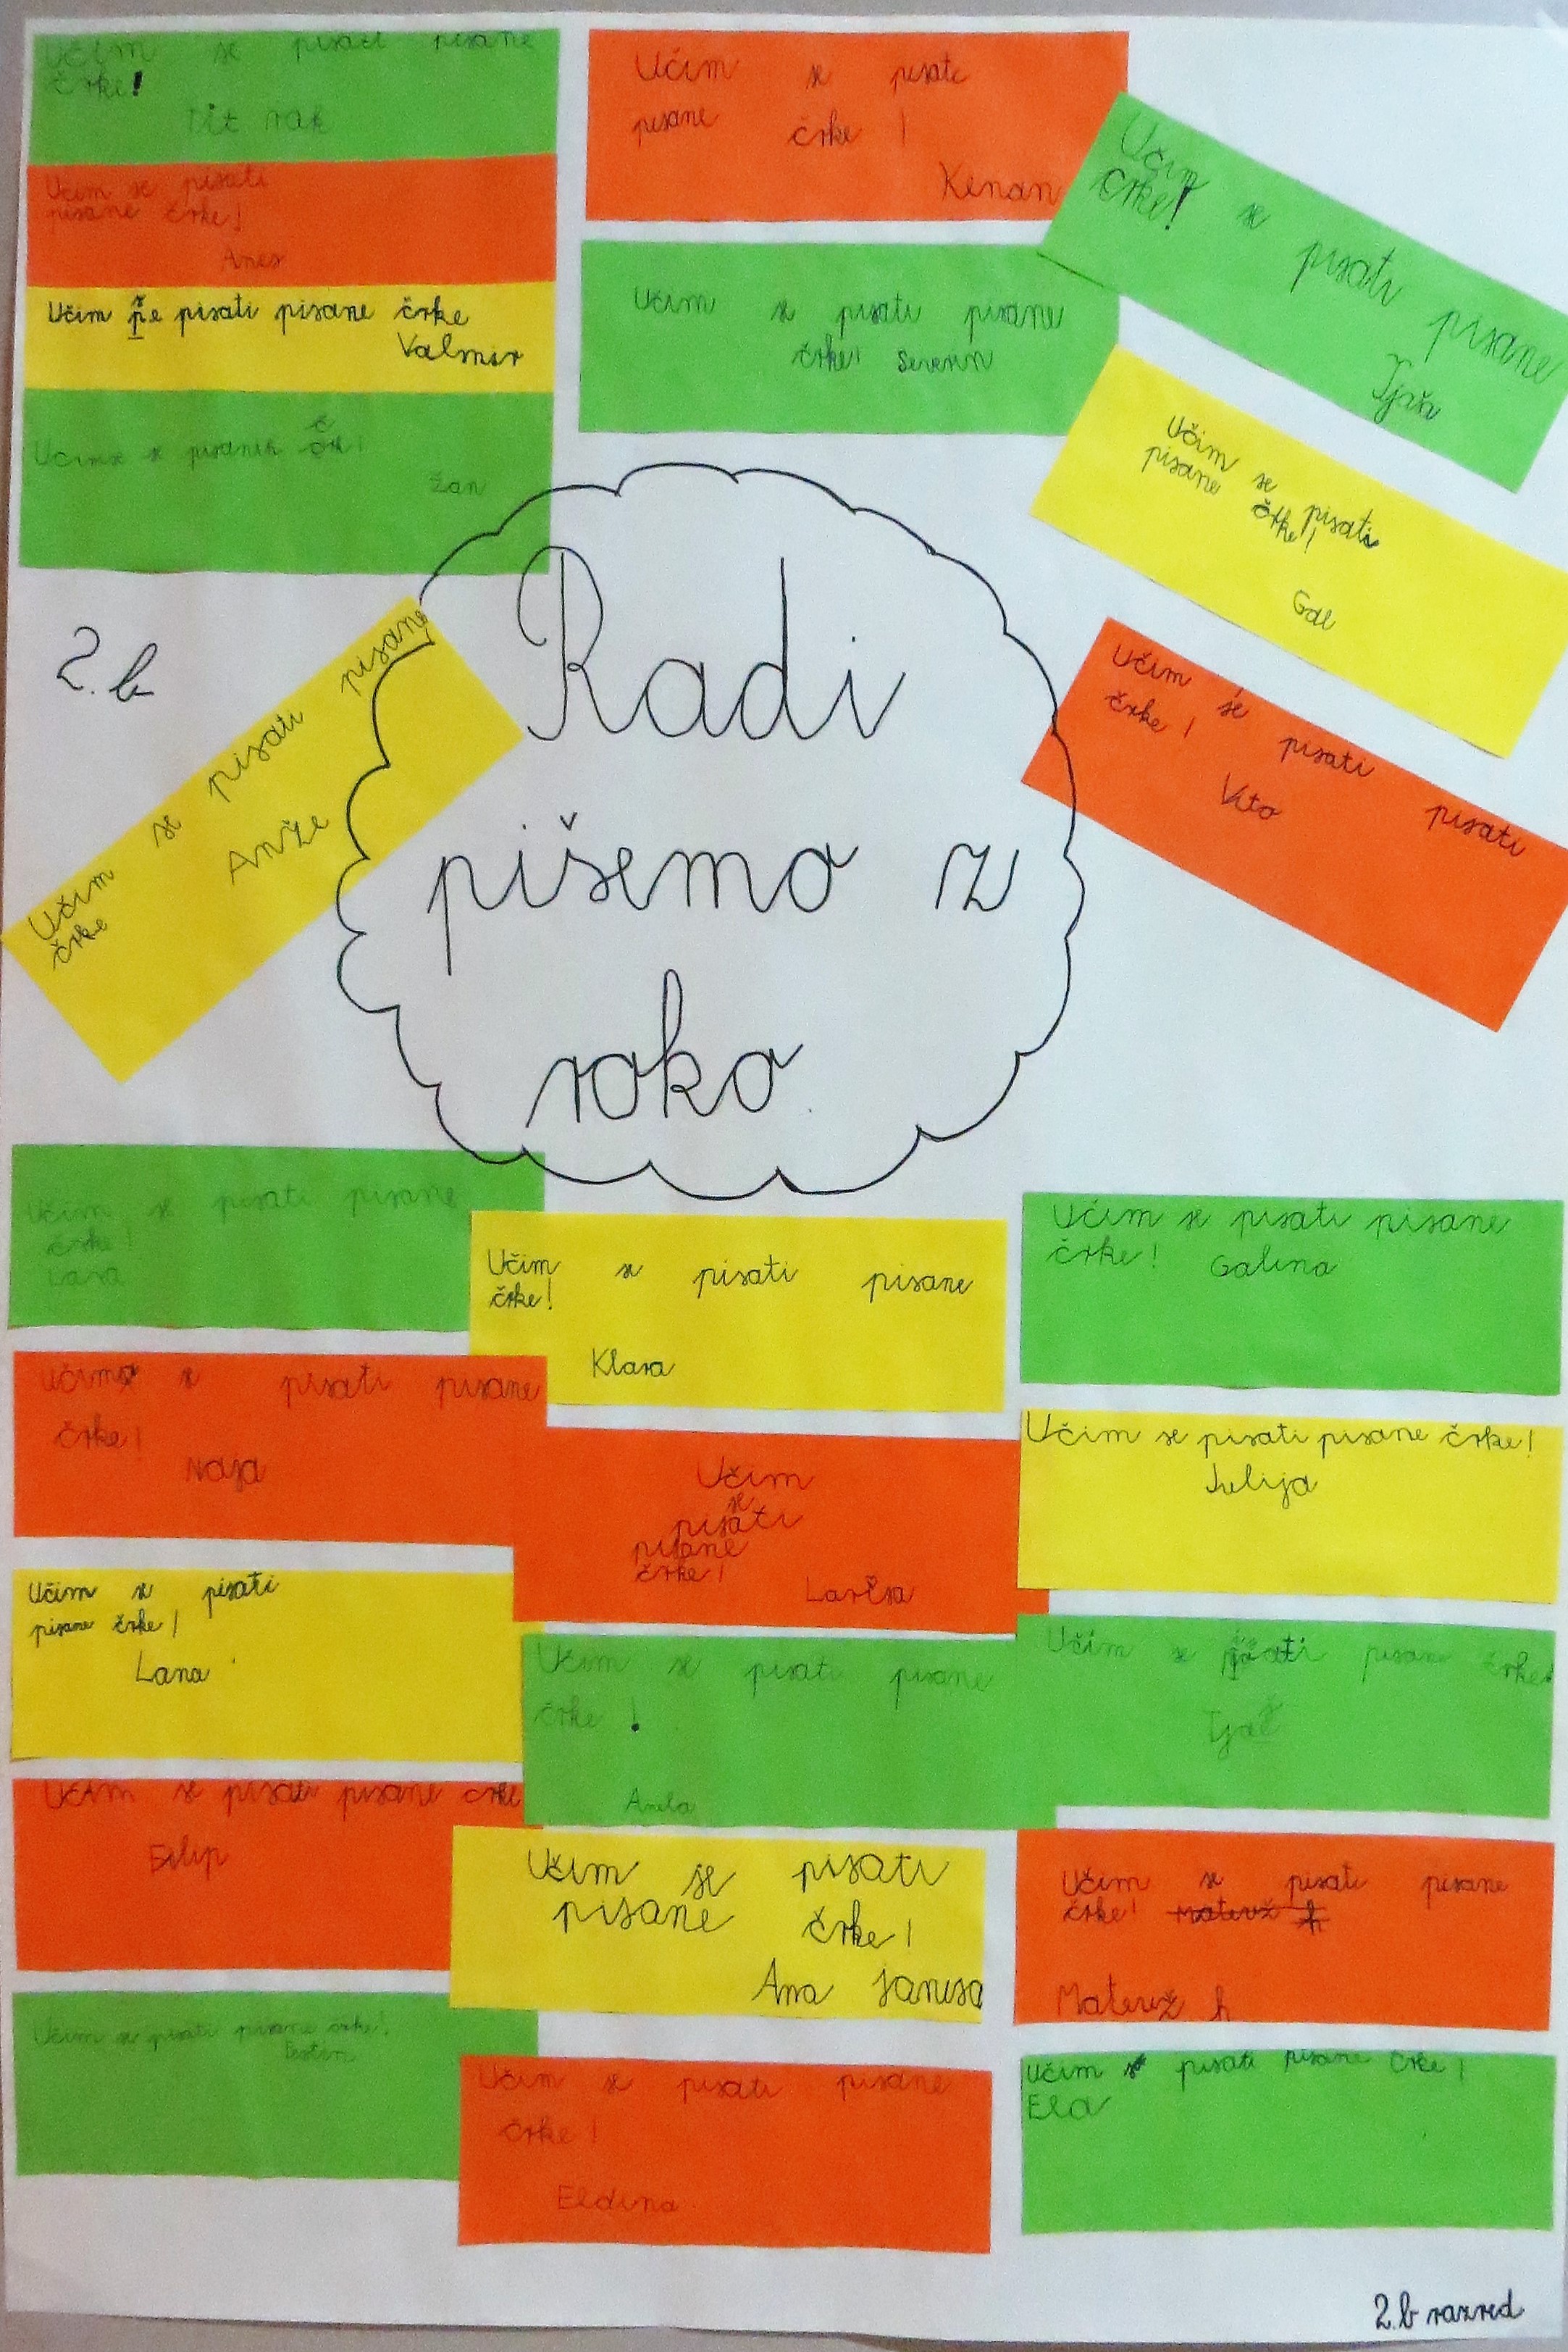 Učim se pisati pisane
črke!
Tit rak
Učim se pisati
pisane črke!
Anes
Učim še pisati pisane črke
Valmir
se pisanih
Žan
Učim se pisati
pisane črke!
Kenan
Učim se pisati pisane
črke! Severin
Učim se pisati pisane
črke!
Tjaša
Učim se pisati
pisane črke!
Gal
Učim se pisati pisati
črke!
Vito
2. b
Učim se pisati pisane
črke
Anže
Radi
pišemo z
roko
Učim se pisati pisane
črke!
Lara
Učim se pisati pisane
črke!
Klara
Učim se pisati pisane
črke! Galina
Učim se pisati pisane
črke!
Naja
Učim
se
pisati
pisane
črke!
Larisa
Učim se pisati pisane črke!
Julija
Učim se pisati
pisane črke!
Lana
Učim se pisati pisane
črke!
Anela
Učim se pisati pisane črke!
Učim se pisati pisane črke
Filip
Učim se pisati
pisane črke!
Ana Janesa
Učim se pisati pisane
črke! Matevž h
Matevž h
Učim se pisati pisane črke!
Učim se pisati pisane
črke!
Eldina
Učim se pisati pisane črke!
Ela
2.b razred